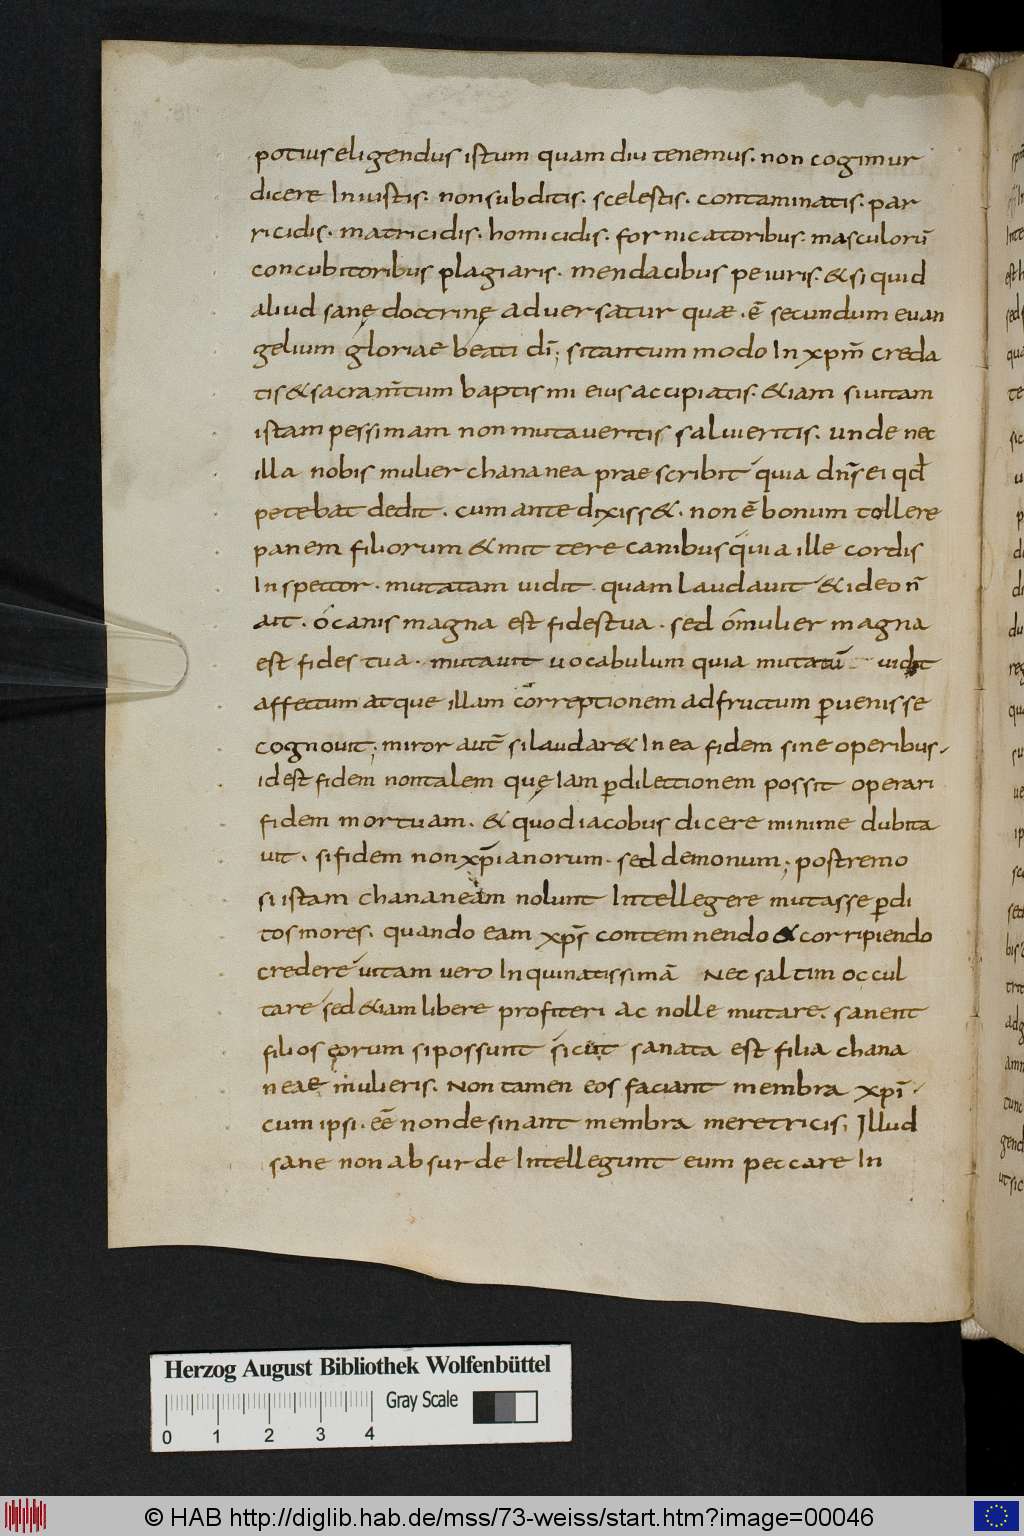 potius eligendus istum quam diu tenemus. non cogimur
dicere Iniustis. non subditis. scelestis. contaminatis. par
ricidis. matricidis. homicidis. fornicatoribus. masculorū
concubitoribus plagiaris. mendacibus peiuris. & si quid
aliud sanę doctrinę adversatur quæ. ē secundum evan
gelium gloriae beati dī; sitantum modo In xpm̄ creda
tis & sacram̄tum baptismi eius accipiatis. &iam si uitam
istam pessimam non mutaveritis salui eritis. unde nec
illa nobis mulier chananea praescribit quia dn̄s ei qd̄
petebat dedit. cum ante dixiss&. non ē bonum tollere
panem filiorum & mittere canibus quia ille cordis
Inspector. mutatam uidit quam laudavit & ideo n̄
ait. o canis magna est fides tua. sed o mulier magna
est fides tua. mutavit uocabulum quia mutatū uidit
affectum atque illam correptionem ad fructum ꝑuenisse
cognovit; miror aut̄ si laudar& In ea fidem sine operibus.
id est fidem non talem quę Iam ꝑ dilectionem possit operari
fidem mortuam. & quod iacobus dicere minime dubita
uit. si fidem non xp̄ianorum. sed demonum; postremo
si istam chananeam nolunt Intellegere mutasse ꝑdi
tos mores. quando eam xps̄ contemnendo & corripiendo
credere uitam uero Inquinatissimā Nec saltim occul
tare sed &iam libere profiteri ac nolle mutare. sanent
filios ęorum si possunt sicut sanata est filia chana
neae mulieris. Non tamen eos faciant membra xpī.
cum ipsi. eē non desinant membra meretricis; Illud
sane non absurde Intellegunt eum peccare In
Herzog August Bibliothek Wolfenbüttel
Gray Scale
0 1 2 3 4
© HAB http://diglib.hab.de/mss/73-weiss/start.htm?image=00046